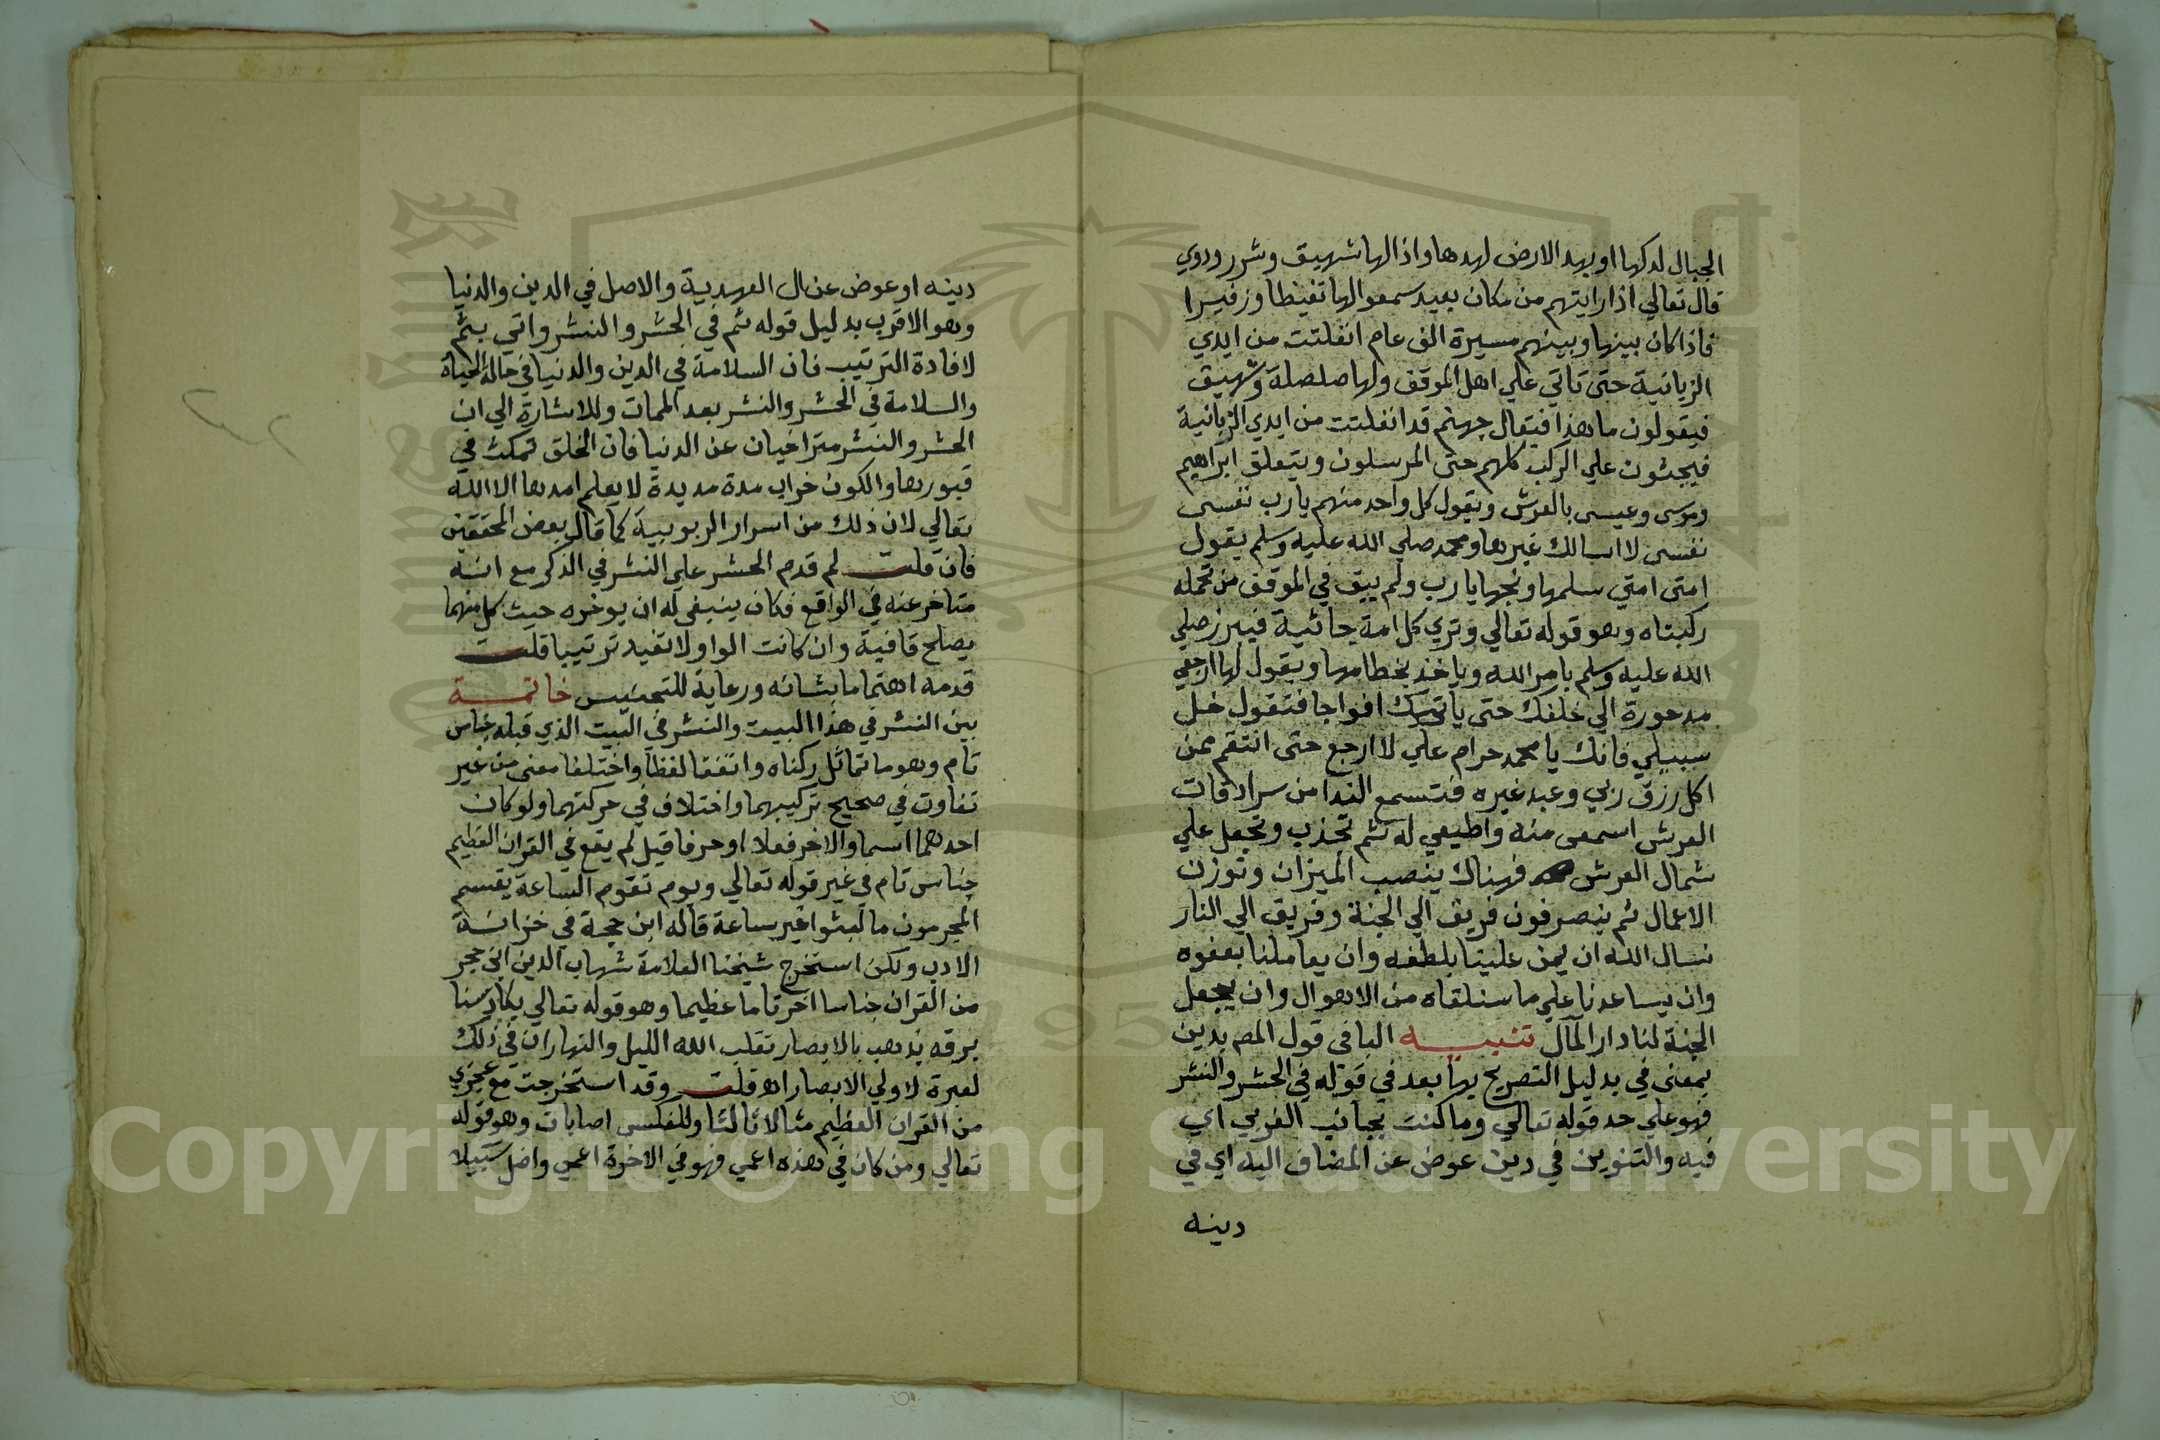 الجبال لدكها او بهد الارض لهدها واذا لها شهيق وشرر ودوي
قال تعالي اذا رايتهم من مكان بعيد سمعوا لها تغيظا وزفيرا
فاذا كان بينها وبينهم مسيرة الف عام انفلتت من ايدي
الزبانية حتى تاتي علي اهل الموقف ولها صلصلة وشهيق
فيقولون ما هذا فيقال جهنم قد انفلتت من ايدي الزبانية
فيجثون علي الركب كلهم حتى المرسلون ويتعلق ابراهيم
وموسى وعيسى بالعرش ويقول كل واحد منهم يا رب نفسي
نفسي لا اسالك غيرها ومحمد صلي الله عليه وسلم يقول
امتى امتي سلمها ونجها يا رب ولم يبق في الموقف من تحمله
ركبتاه وهو قوله تعالي وتري كل امة جاثية فيبرز صلي
الله عليه وسلم بامر الله وياخذ بخطامها ويقول لها ارجعي
مدحورة الي خلفك حتى ياتيك افواجا فتقول خل
سبيلي فانك يا محمد حرام علي لا ارجع حتى انتقم ممن
اكل رزق ربي وعبد غيره فتسمع الندا من سرادقات
العرش اسمعى منه واطيعي له ثم تجذب وتجعل علي
شمال العرش فهناك ينصب الميزان وتوزن
الاعمال ثم ينصرفون فريق الي الجنة وفريق الي النار
نسال الله ان يمن علينا بلطفه وان يعاملنا بعفوه
وان يساعدنا علي ما سنلقاه من الاهوال وان يجعل
الجنة لنا دار المآل تنبيه البا في قول المص بدين
بمعنى في بدليل التصريح بها بعد في قوله في الحشر والنشر
فهو علي حد قوله تعالي وما كنت بجانب الغربي اي
فيه والتنوين في دين عوض عن المضاف اليه اي في
دينه
دينه او عوض عن ال العهدية والاصل في الدين والدنيا
وهو الاقرب بدليل قوله ثم في الحشر والنشر واتي بثم
لافادة الترتيب فان السلامة في الدين والدنيا في حالة الحياة
والسلامة في الحشر والنشر بعد الممات وللاشارة الي ان
الحشر والنشر متراخيان عن الدنيا فان الخلق تمكث في
قبورها والكون خراب مدة مديدة لا يعلم امدها الا الله
تعالي لان ذلك من اسرار الربوبية كما قال بعض المحققين
فان قلت لم قدم الحشر علي النشر في الذكر مع انه
متاخر عنه في الواقع فكان ينبغي له ان يوخره حيث كل منهما
يصلح قافية وان كانت الواو لا تفيد ترتيبا قلت
قدمه اهتماما بشانه ورعاية للتجنيس خاتمة
بين النشر في هذا البيت والنشر في البيت الذي قبله جناس
تام وهو ما تماثل ركناه واتفقا لفظا واختلفا معنى من غير
تفاوت في صحيح تركيبهما واختلاف في حركتهما ولو كان
احدهما اسما والاخر فعلا او حرفا قيل لم يقع في القران العظيم
جناس تام في غير قوله تعالي ويوم تقوم الساعة يقسم
المجرمون ما لبثوا غير ساعة قاله ابن حجة في خزانة
الادب ولكن استخرج شيخنا العلامة شهاب الدين ابن حجر
من القران جناسا اخر تاما عظيما وهو قوله تعالي يكاد سنا
برقه يذهب بالابصار تقلب الله الليل والنهار ان في ذلك
لعبرة لاولي الابصار اه قلت وقد استخرجت مع عجزي
من القران العظيم مثالا ثالثا وللمفلس اصابات وهو قوله
تعالي ومن كان في هذه اعمي فهو في الاخرة اعمي واضل سبيلا
Copyright © King Saud University
1957